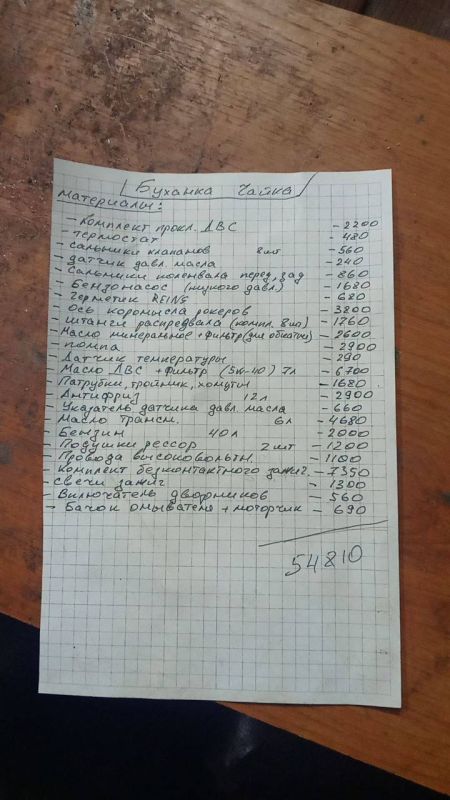 Буханка Чайка
Материалы:
- Комплект прокл. ДВС - 2200
- термостат - 480
- сальники клапанов 8шт - 560
- датчик давл. масла - 240
- Сальники коленвала перед, зад - 860
- Бензонасос (низкого давл.) - 1680
- Герметик REINS - 680
- Ось коромысла рокеров - 3800
- штанги распредвала (компл. 8шт) - 1760
- Масло минеральное + фильтр (для обкатки) - 2600
- помпа - 2900
- Датчик температуры - 290
- Масло ДВС + фильтр (5w-40) 7л - 6700
- Патрубки, тройник, хомуты - 1680
- Антифриз 12л - 2900
- Указатель датчика давл. масла - 660
- Масло трансм. 6л - 4680
- Бензин 40л - 2000
- Подушки рессор 2шт - 1200
- Провода высоковольтн. - 1100
- Комплект безконтактного зажиг. - 7350
- свечи зажиг - 1300
- Включатель дворников - 560
- Бачок омывателя + моторчик - 690
54810